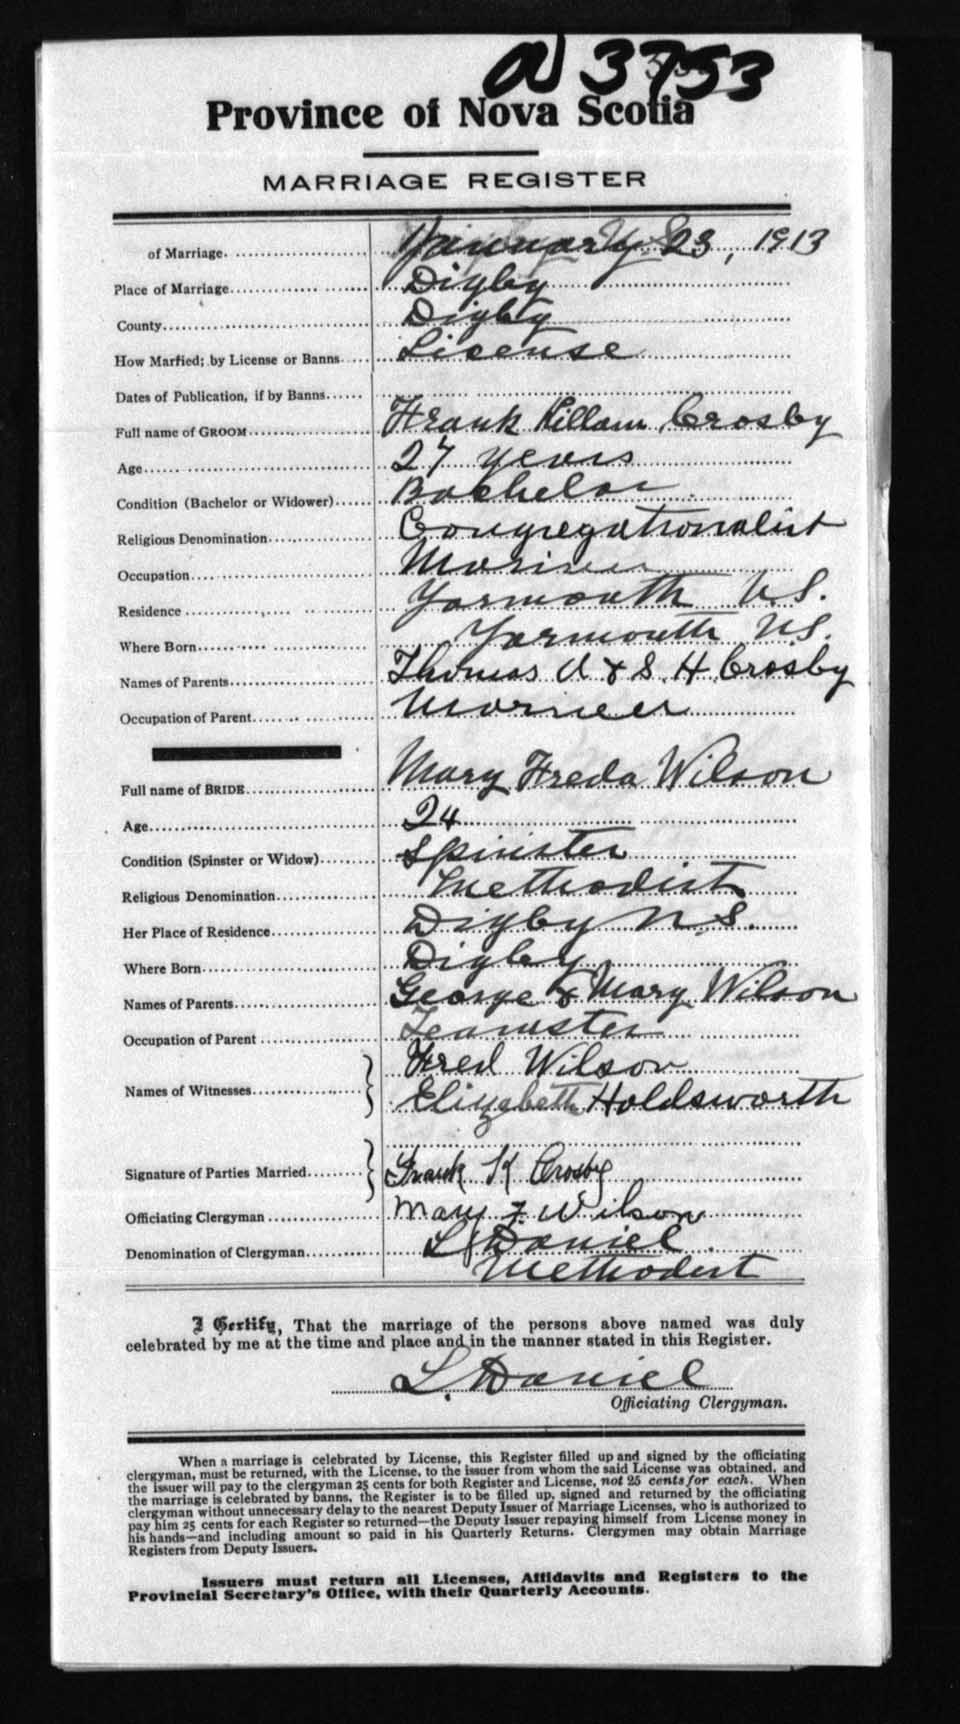 3753
Province of Nova Scotia
MARRIAGE REGISTER
of Marriage January 23, 1913
Place of Marriage Digby
County Digby
How Married; by License or Banns License
Dates of Publication, if by Banns
Full name of GROOM Frank Killam Crosby
Age 27 years
Condition (Bachelor or Widower) Bachelor
Religious Denomination Congregationalist
Occupation Mariner
Residence Yarmouth N.S.
Where Born Yarmouth N.S.
Names of Parents Thomas A & S. H. Crosby
Occupation of Parent Marineer
Full name of BRIDE Mary Freda Wilson
Age 24
Condition (Spinster or Widow) Spinster
Religious Denomination Methodist
Her Place of Residence Digby N.S.
Where Born Digby
Names of Parents George & Mary Wilson
Occupation of Parent Teamster
Names of Witnesses Fred Wilson
Elizabeth Holdsworth
Signature of Parties Married Frank K Crosby
Officiating Clergyman Mary F. Wilson
Denomination of Clergyman Daniel
Methodist
I Certify, That the marriage of the persons above named was duly
celebrated by me at the time and place and in the manner stated in this Register.
L. Daniel
Officiating Clergyman.
When a marriage is celebrated by License, this Register filled up and signed by the officiating
clergyman, must be returned, with the License, to the issuer from whom the said License was obtained, and
the issuer will pay to the clergyman 25 cents for both Register and License, not 25 cents for each. When
the marriage is celebrated by banns, the Register is to be filled up, signed and returned by the officiating
clergyman without unnecessary delay to the nearest Deputy Issuer of Marriage Licenses, who is authorized to
pay him 25 cents for each Register so returned—the Deputy Issuer repaying himself from License money in
his hands—and including amount so paid in his Quarterly Returns. Clergymen may obtain Marriage
Registers from Deputy Issuers.
Issuers must return all Licenses, Affidavits and Registers to the
Provincial Secretary's Office, with their Quarterly Accounts.